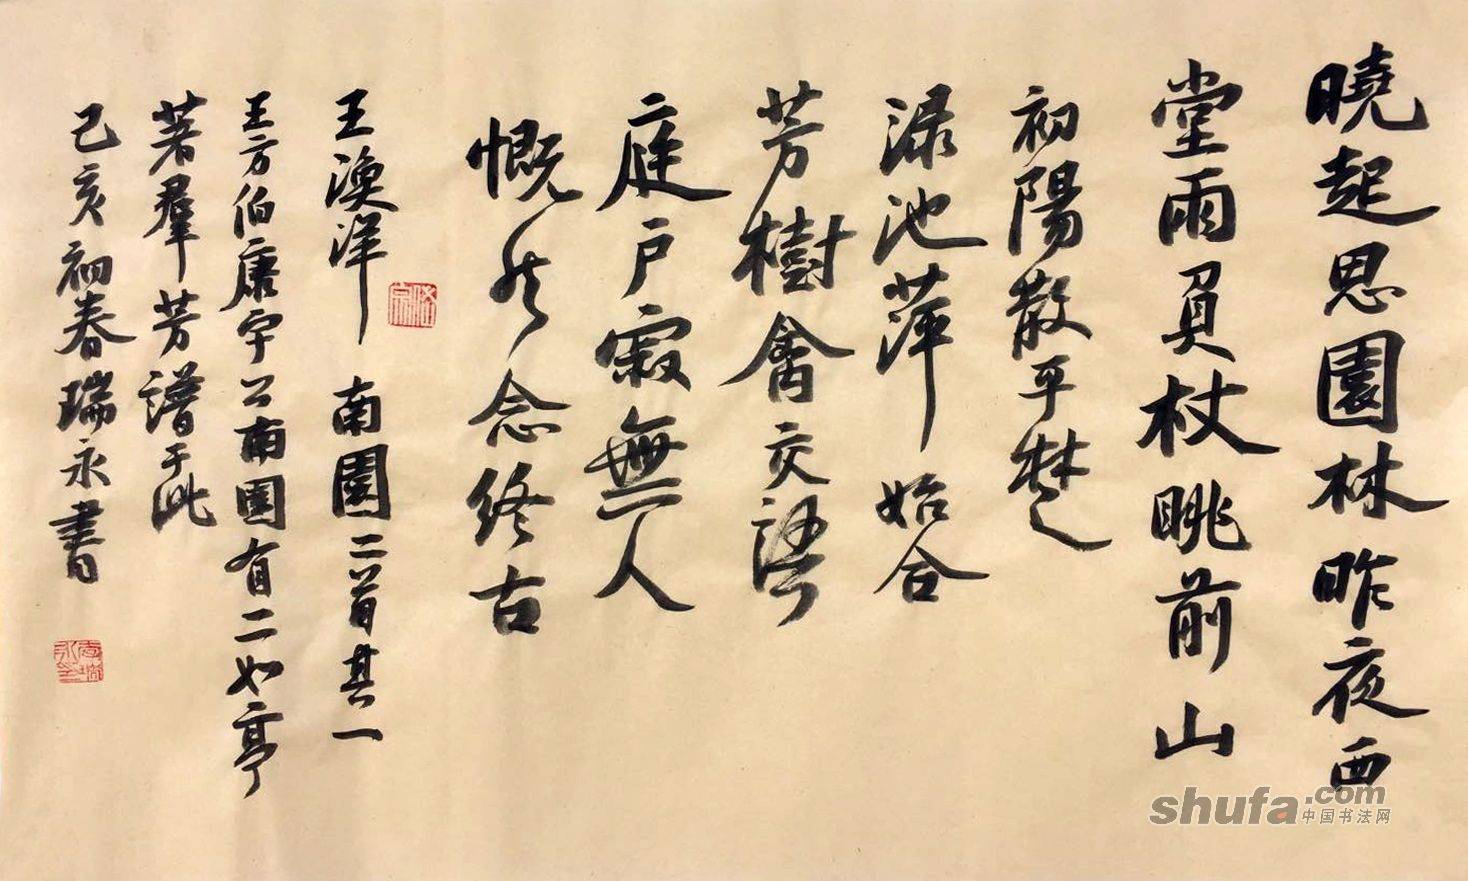 曉起思園林昨夜西
堂雨負杖眺前山
初陽散平楚
渌池萍始合
芳樹禽交語
庭戶寂無人
慨然念終古
王漁洋 南園二首其一
王方伯康宇公南園有二如亭
著羣芳譜于此
己亥初春瑞永書
shufa.com
中国书法网